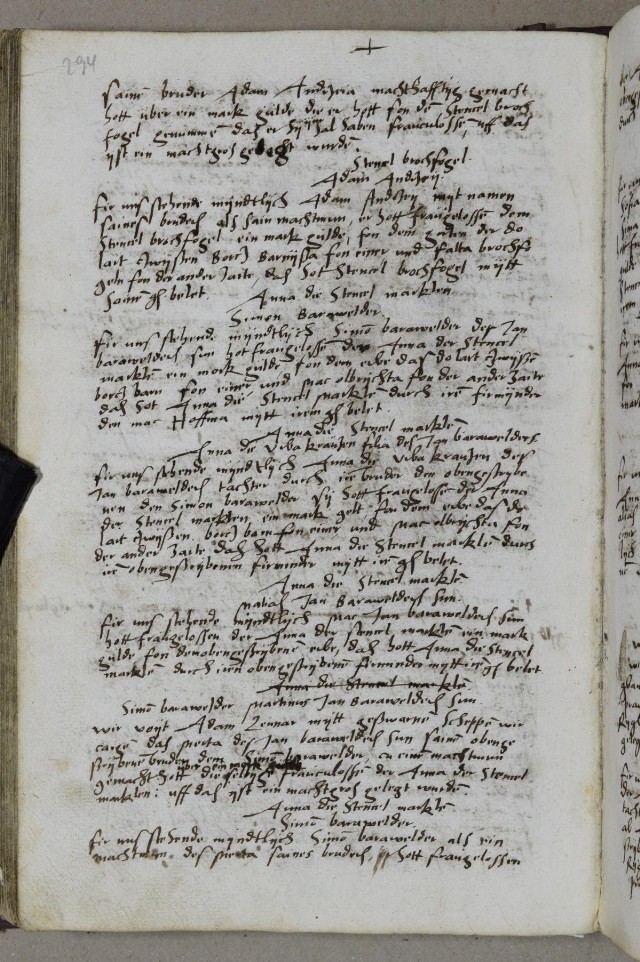 294
+
saine bruder Adam Andrzeia machthafftig gemacht
hott über ein mark gülde die er hott fon dem Stencel broch
fogel genumme das er sy sal haben frauculosse uff das
yst ein machtgros gelegt wurde
Stencel brochfogel
Adam Andrzey
fir uns stehende myndtlych Adam Andrzey myt namen
saines bruders als sain machtman, er hott fraugelosse dem
Stencel brochfogel ein mark gülde, fon dem garten der do
lait zwyssen Borcz Barnyssa fon einer und Falta brochfo
geln fon der ander zaite, das hot Stencel brochfogel mytt
saine gh belet.
Anna die Stencel markten
Simon Barawelder
fir uns stehende myndtlych Simo barawelder des Jan
barawelders son hot fraugelosse der Anna der Stencel
markten ein mark gülde fon dem erbe das do lait zwysse
borcz barn fon einer und mac olbrychta fon der ander zaite
das hot Anna die Stencel markten durch iren firmynder
den mac Hoffma mytt irem gh belet
Anna die Stencel markten
Anna die Urba krausen filia des Jan barawelders
fir uns stehende myndtlych Anna die Urba krausen des
Jan barawelders tachter durch ire bruder den obengeschrybe
nen den Simon barawelder sy hott fraugelosse der Anna
der Stencel markten, ein mark gelt fon dem erbe das do
lait zwyssen borcz barn fon einer und mac olbrychta fon
der ander zaite das hott Anna die Stencel markten durch
iren obengeschrybenen firminder mytt irem gh belet.
Anna die Stencel markten
mathis Jan Barawelders sun.
fir uns stehende myndtlych mac Jan barawelders sun
hott fraugelossen der Anna der stencel markten ein mark
gülde fon dem obengeschrybene erbe, das hott Anna die Stencel
markten durch iren obengeschrybene firminder mytt irem gh belet
Anna die Stencel markten
Simon barawelder Martinus Jan Barawelders sun.
wir voyt Adam Lennar mytt geschwarne scheppe wir
das des Jan barawelders sun saine obenge
schrybene bruder dem Simo barawelder zu eine machtman
gemacht hott die selbige frauculosse der Anna der Stencel
markten: uff das yst ein machtgros gelegt wurde
Anna die Stencel markten
Simon barawelder.
fir uns stehende myndtlych Simo barawelder als ein
machtman des saines bruders, hott fraugelossen